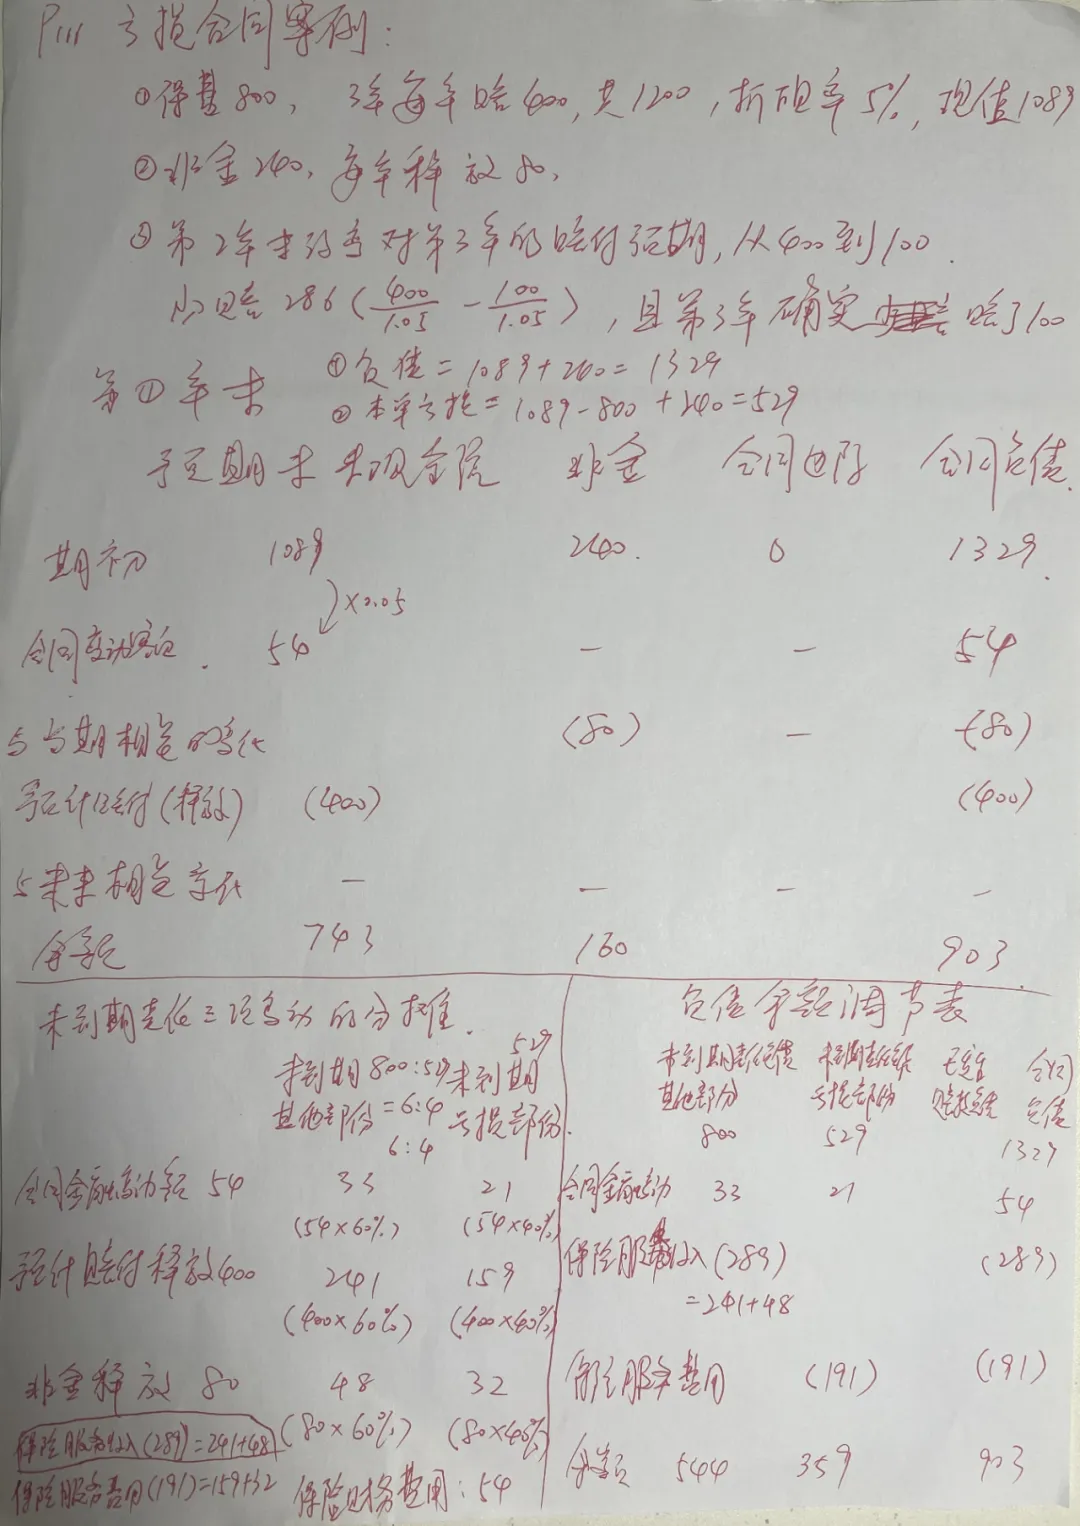 P111 亏损合同案例:
①保费800, 3年每年赔400,共1200,折现率5%,现值1089
②非金240,每年释放80,
③第2年末改变对第3年的赔付预期,从400到100.
少赔286(400/1.05-100/1.05),且第3年确实赔了100
第①年末
①负债=1089+240=1329
②本单亏损=1089-800+240=529
预期未来现金流 非金 合同边际 合同负债
期初 1089 240. 0 1329
×0.05
合同变动 54 - - 54
与当期相关的变化 (80) - (80)
预计赔付(释放) (400) (400)
与未来相关变化 - - - -
余额 743 160 903
未到期责任三项变动的分摊.
未到期其他部份 800:529=6:4 未到期亏损部份 529
6:4
合同金融变动额 54 33 21
(54×60%) (54×40%)
预计赔付释放400 241 159
(400×60%) (400×40%)
非金释放 80 48 32
(80×60%) (80×40%)
保险服务收入(289)=241+48
保险服务费用(191)=159+32 保险财务费用:54
负债余额调节表
未到期责任负债其他部分 未到期责任负债亏损部份 已发生赔款负债 合同负债
800 529 1329
合同金融变动 33 21 54
保险服务收入(289) (289)
=241+48
保险服务费用 (191) (191)
余额 544 359 903